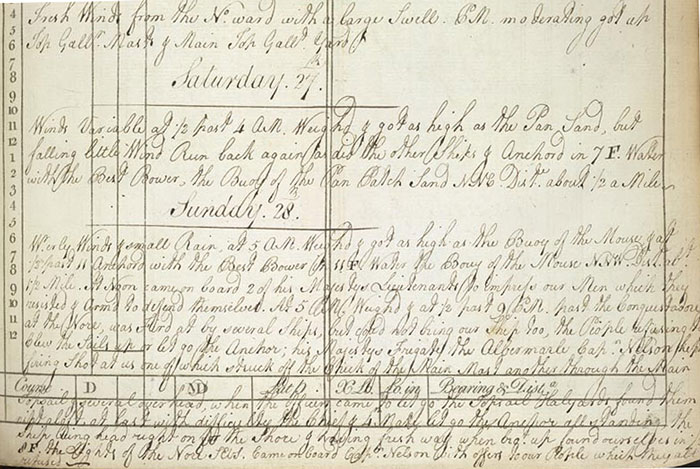 Fresh Winds from the N:ward with a large Swell. P.M. moderating got up
Top Gallt. Mast & Main Top Gallt. Yard
Saturday. 27th
Winds Variable at ½ past 4 A.M. Weigh'd & got as high as the Pan Sand, but
falling little Wind Run back again as did the other Ships & Anchord in 7 F. Water
with the Best Bower, the Buoy of the Pan Patch Sand NNE Dist. about ½ a Mile
Sunday. 28th
W:erly Winds & small Rain, at 5 A.M. Weigh'd & got as high as the Buoy of the Mouse & at
½ past 11 Anchord with the Best Bower in 11 F. Water the Bouy of the Mouse Dist. abt.
1½ Mile. At Noon came on board 2 of his Majestys Lieutenants to impress our Men which they
resisted & Armd to defend themselves. At 5 P.M. Weigh'd & at ½ past 9 P.M. past the Conquestadore
at the Nore, was fired at by several Ships, but could not bring our Ship too, the People refusing to
Clew the Sails up or let go the Anchor; his Majestys Frigate the Albermarle Capn. Nelson kept
firing Shot at us one of which struck off the Cheek of the Main Mast another through the Main
Course D M Lat. in Bearing & Dista.
Topsail & several over head, when the came to let go the Topsail Halyards found them
at last with difficulty the Chief & 4 Mate let go the Anchor all standing the
Ship Hung head right on for the Shore & having fresh way when brot. up found ourselves in
8 F. the Lights of the Nore Came on board Capn. Nelson with offers to our People which they all
refused